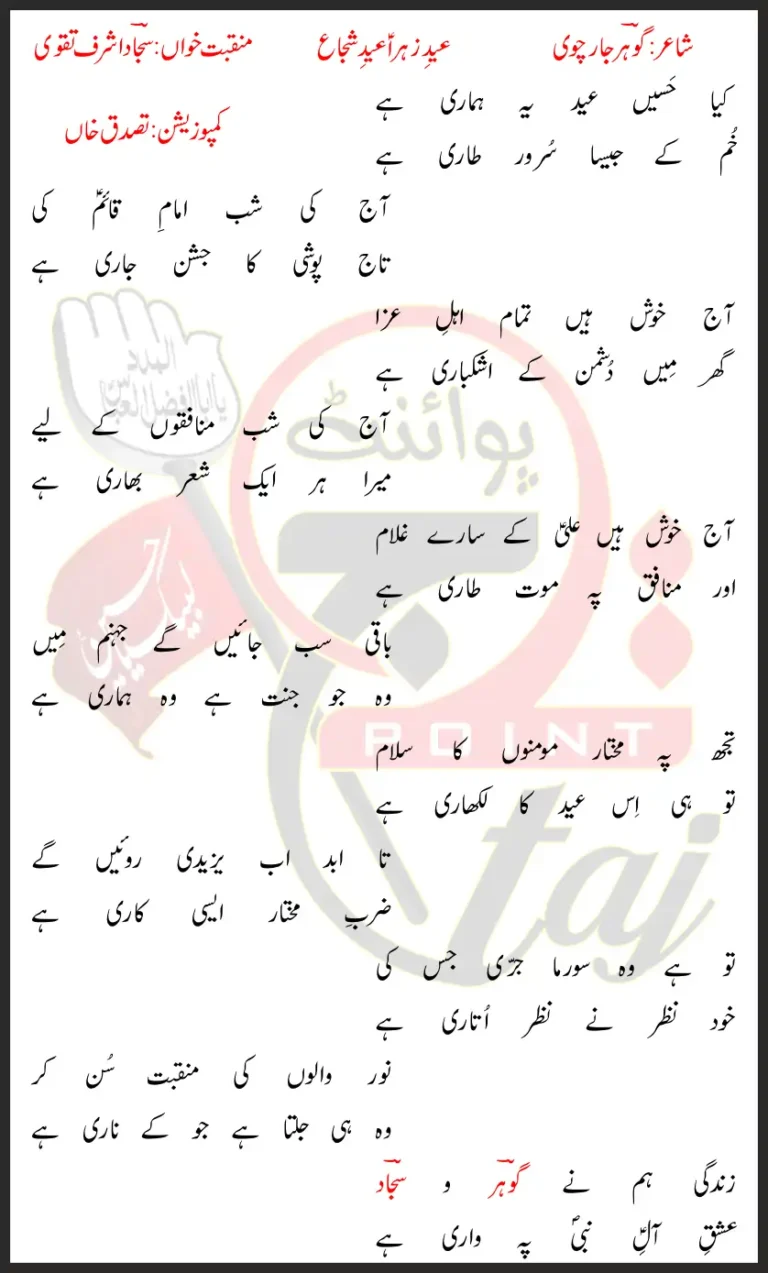 شاعر: گوہر جارچوی عیدِ زہراؑ عیدِ شجاع منقبت خواں: سجاد اشرف تقوی
کمپوزیشن: تصدق خاں
کیا حَسیں عید یہ ہماری ہے
خُم کے جیسا سُرور طاری ہے
آج کی شب امامِ قائمؑ کی
تاج پوشی کا جشن جاری ہے
آج خوش ہیں تمام اہلِ عزا
گھر مِیں دُشمن کے اشکباری ہے
آج کی شب منافقوں کے لیے
میرا ہر ایک شعر بھاری ہے
آج خوش ہیں علیؑ کے سارے غلام
اور منافق پہ موت طاری ہے
باقی سب جائیں گے جہنم مِیں
وہ جو جنت ہے وہ ہماری ہے
تجھ پہ مختار مومنوں کا سلام
تو ہی اِس عید کا لکھاری ہے
تا ابد اب یزیدی روئیں گے
ضربِ مختار ایسی کاری ہے
تو ہے وہ سورما جرّی جس کی
خود نظر نے نظر اُتاری ہے
نور والوں کی منقبت سُن کر
وہ ہی جلتا ہے جو کے ناری ہے
زندگی ہم نے گوہرؔ و سجادؔ
عشقِ آلِ نبیؐ پہ واری ہے
المدد
یا ابا الفضل العباس
لبیک یا حسین
پوائنٹ
تاج
POINT
taj